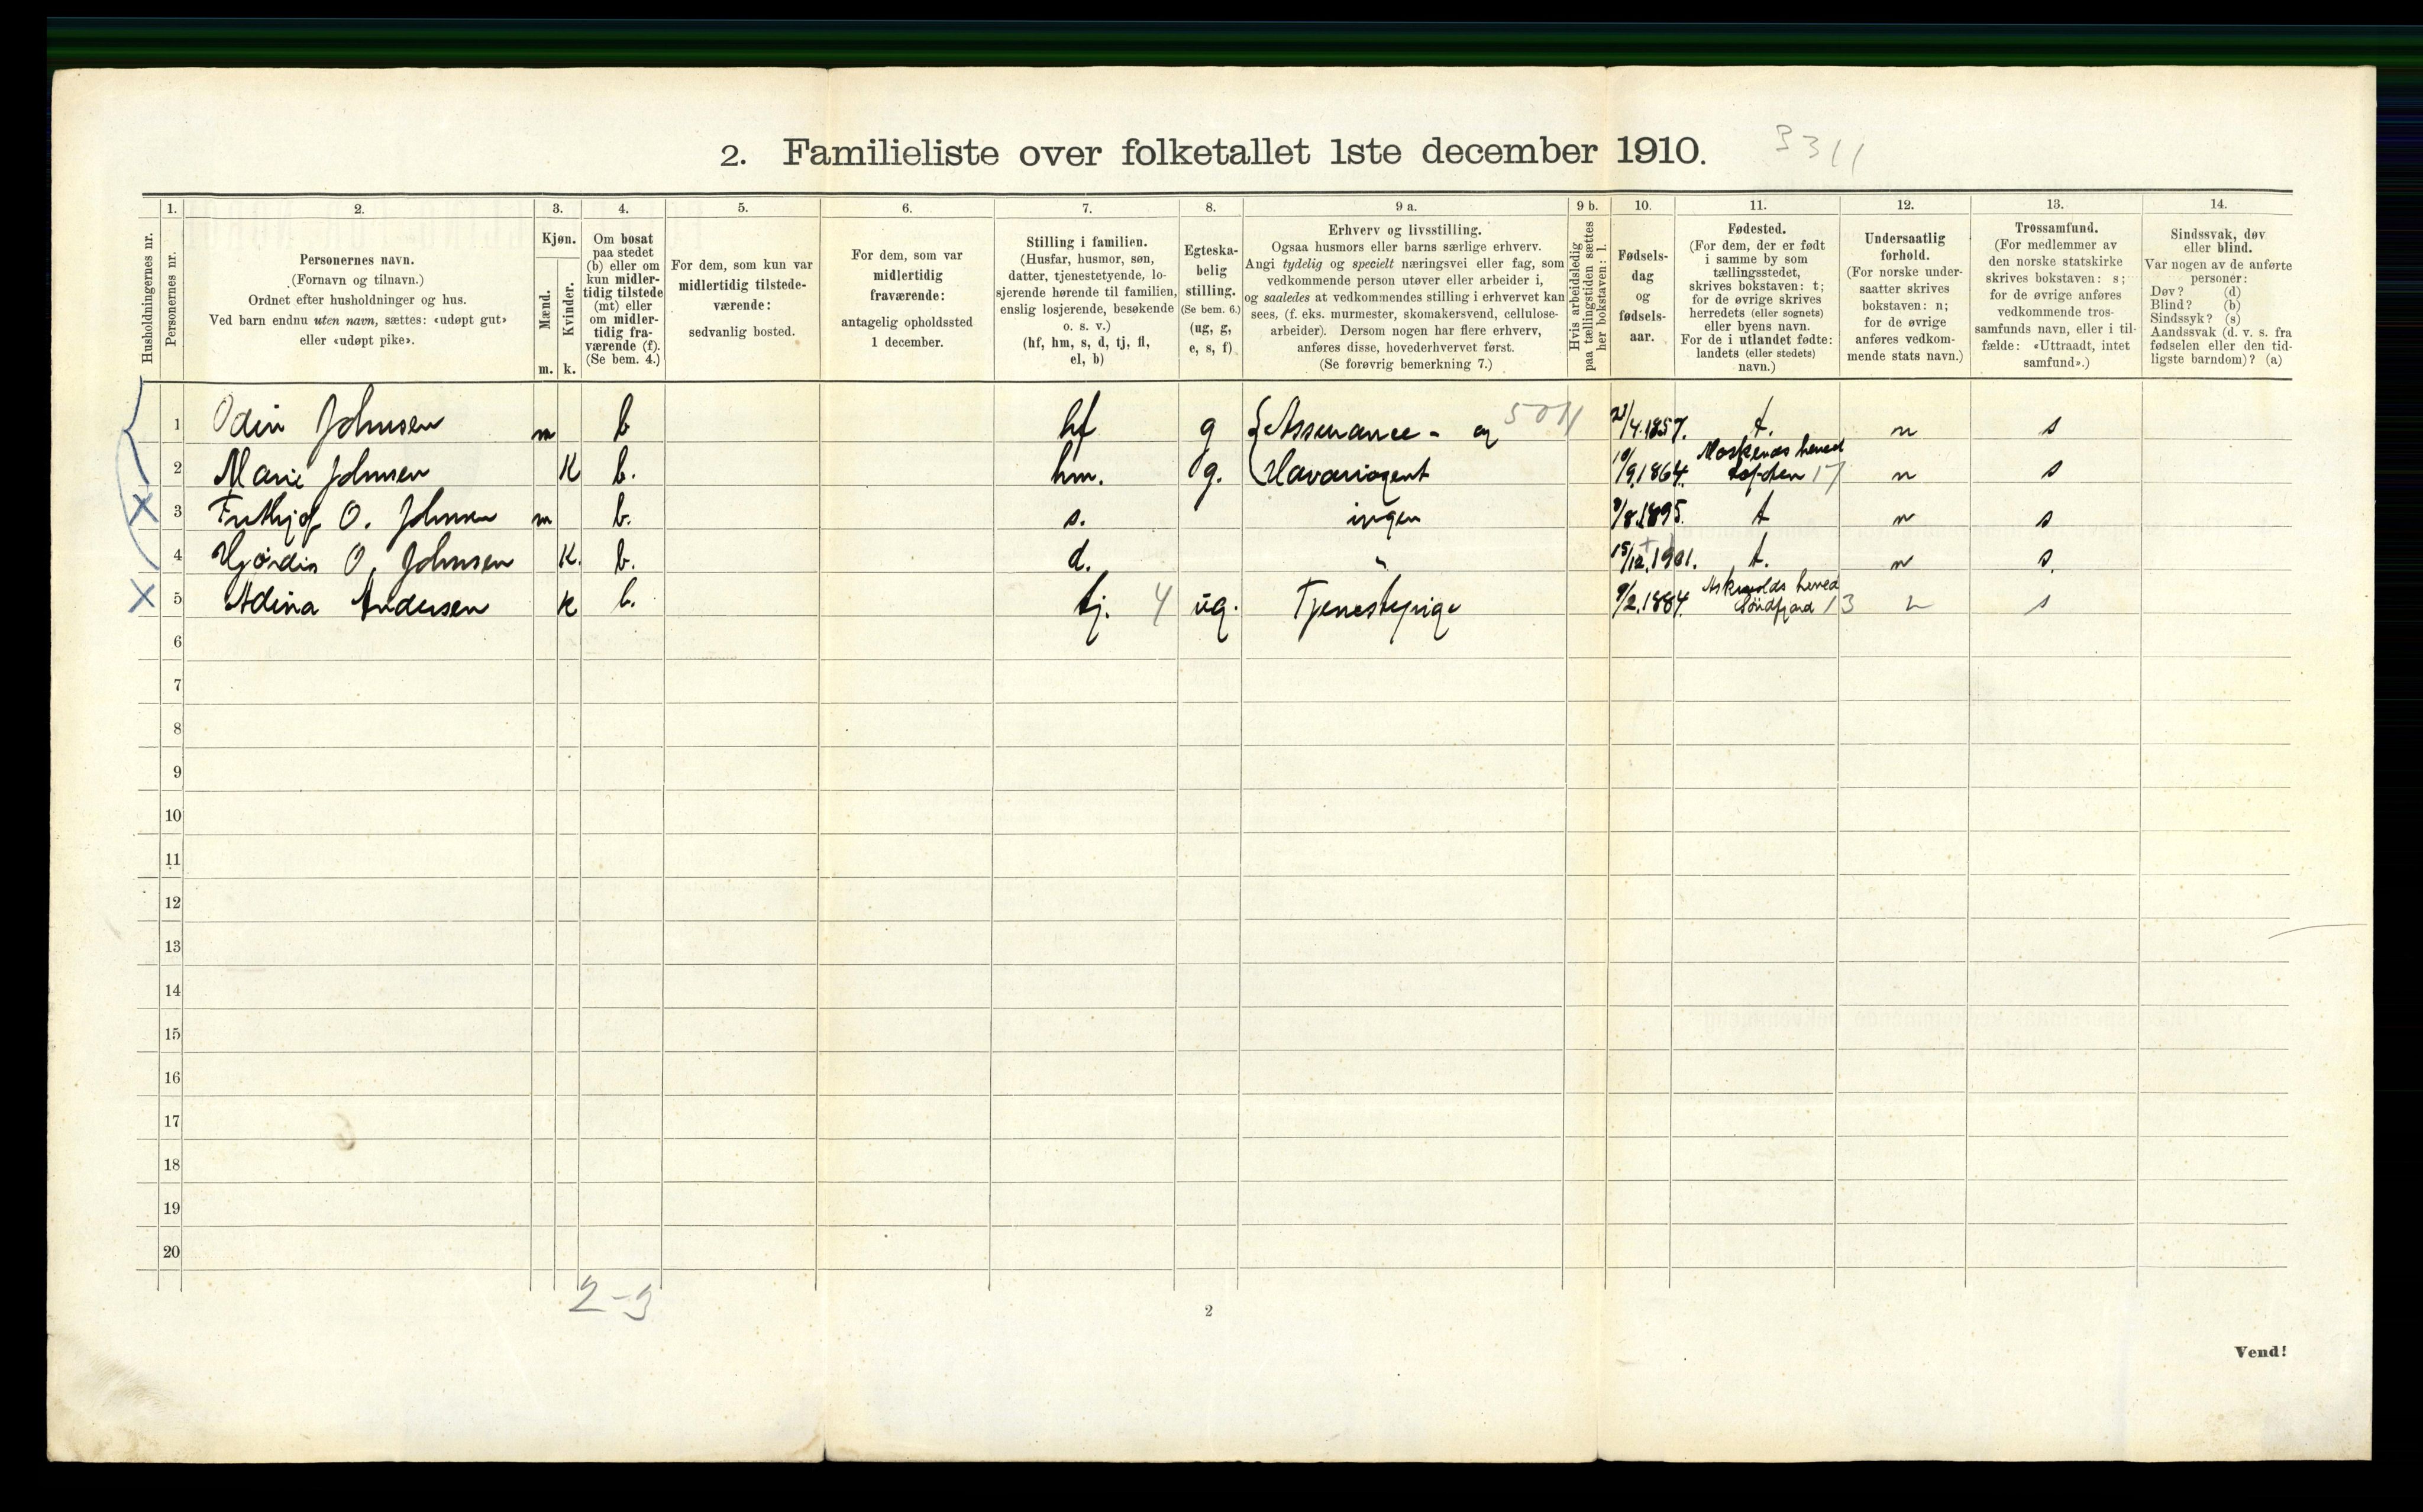 2. Familieliste over folketallet 1ste december 1910.
3311
Husholdningernes nr.
1.
Personernes nr.
2.
Personernes navn.
(Fornavn og tilnavn.)
Ordnet efter husholdninger og hus.
Ved barn endnu uten navn, sættes: «udøpt gut»
eller «udøpt pike».
3.
Kjøn.
Mænd.
Kvinder.
m. k.
4.
Om bosat
paa stedet
(b) eller om
kun midler-
tidig tilstede
(mt) eller
om midler-
tidig fra-
værende (f).
(Se bem. 4.)
5.
For dem, som kun var
midlertidig tilstede-
værende:
sedvanlig bosted.
6.
For dem, som var
midlertidig
fraværende:
antagelig opholdssted
1 december.
7.
Stilling i familien.
(Husfar, husmor, søn,
datter, tjenestetyende, lo-
sjerende hørende til familien,
enslig losjerende, besøkende
o. s. v.)
(hf, hm, s, d, tj, fl,
el, b)
8.
Egteska-
belig
stilling.
(Se bem. 6.)
(ug, g,
e, s, f)
9 a.
Erhverv og livsstilling.
Ogsaa husmors eller barns særlige erhverv.
Angi tydelig og specielt næringsvei eller fag, som
vedkommende person utøver eller arbeider i,
og saaledes at vedkommendes stilling i erhvervet kan
sees, (f. eks. murmester, skomakersvend, cellulose-
arbeider). Dersom nogen har flere erhverv,
anføres disse, hovederhvervet først.
(Se forøvrig bemerkning 7.)
9 b.
Hvis arbeidsledig
paa tællingstiden sættes
her bokstaven: l.
10.
Fødsels-
dag
og
fødsels-
aar.
11.
Fødested.
(For dem, der er født
i samme by som
tællingsstedet,
skrives bokstaven: t;
for de øvrige skrives
herredets (eller sognets)
eller byens navn.
For de i utlandet fødte:
landets (eller stedets)
navn.)
12.
Undersaatlig
forhold.
(For norske under-
saatter skrives
bokstaven: n;
for de øvrige
anføres vedkom-
mende stats navn.)
13.
Trossamfund.
(For medlemmer av
den norske statskirke
skrives bokstaven: s;
for de øvrige anføres
vedkommende tros-
samfunds navn, eller i til-
fælde: «Uttraadt, intet
samfund».)
14.
Sindssvak, døv
eller blind.
Var nogen av de anførte
personer:
Døv? (d)
Blind? (b)
Sindssyk? (s)
Aandssvak (d. v. s. fra
fødselen eller den tid-
ligste barndom)? (a)
1 Odin Johnsen m b hf g Assurance- og 5011 /4.1857. t. n s
2 Marie Johnsen K b. hm. g. Havariagent 10/9.1864. Moskenes herred Lofoden 17 n s
3 Frithjof O. Johnsen m b. s. ingen /8.1895. t n s
4 Hjørdis O. Johnsen K. b. d. " 15/12.1901. t. n s.
5 Adina Andersen k b. tj. 4 ug. Tjenestepige 9/2.1884. Askvolds herred Søndfjord 13 n s
6
7
8
9
10
11
12
13
14
15
16
17
18
19
20
2-3
2
Vend!